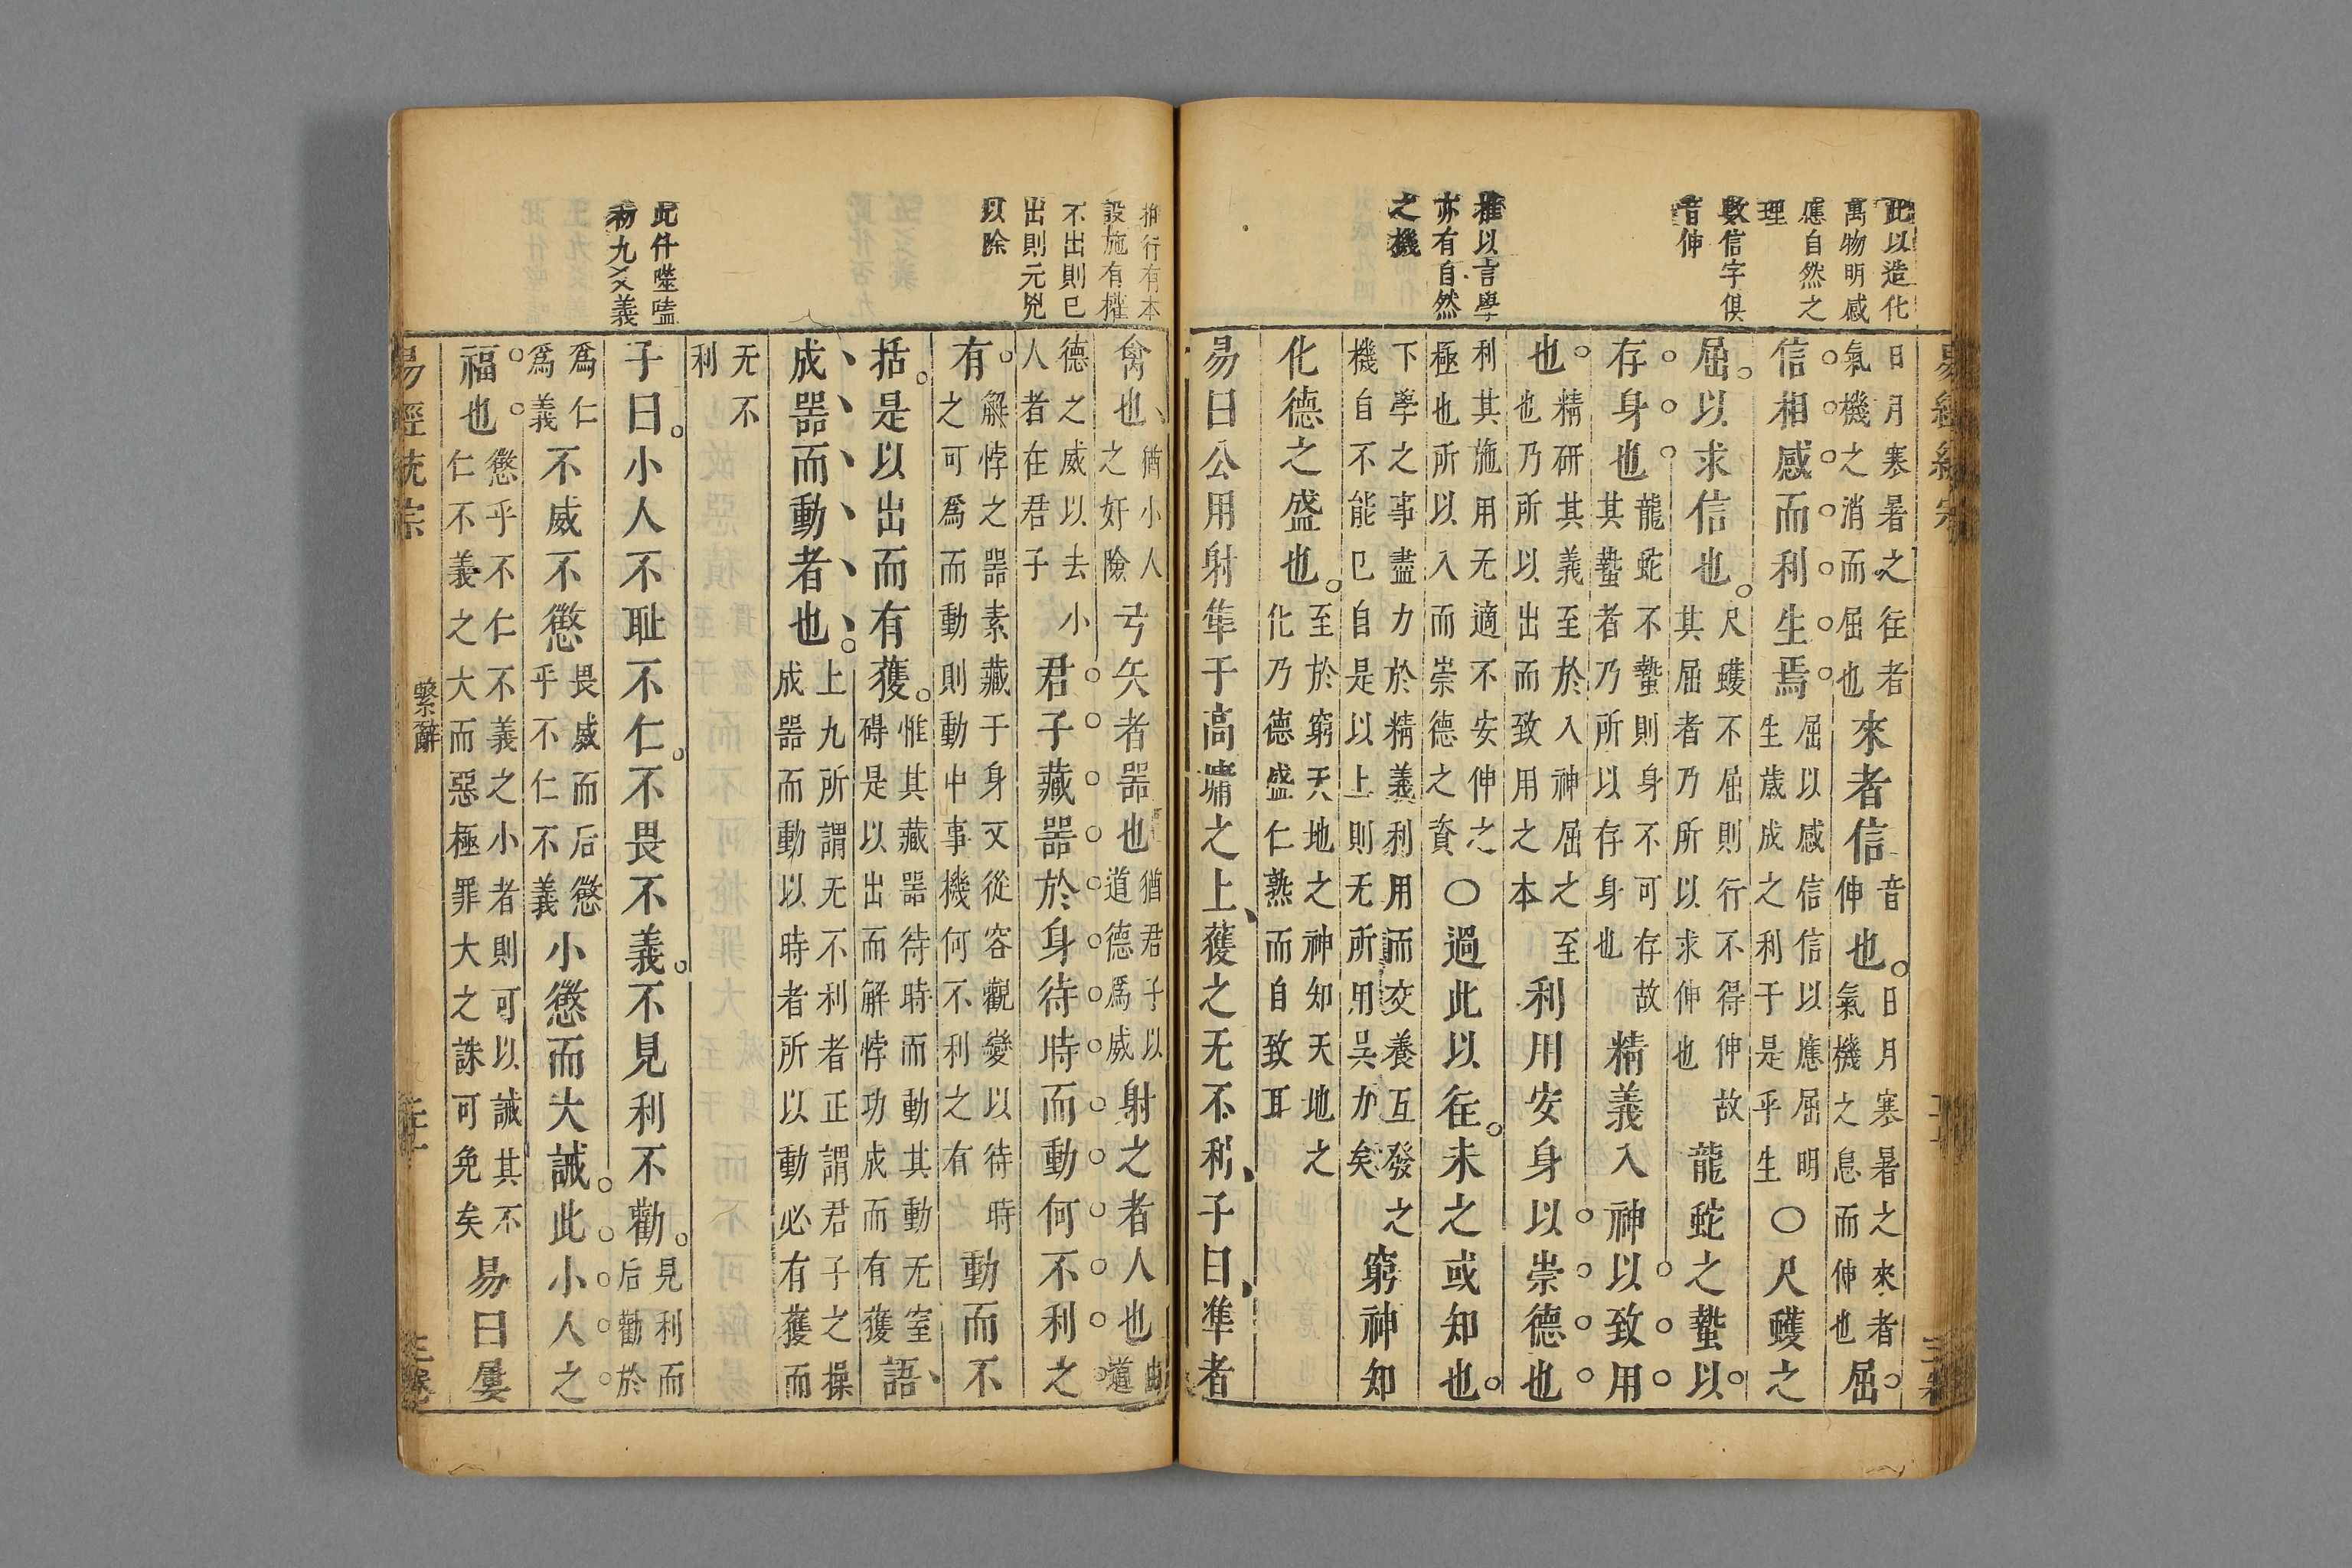 此以造化
萬物明感
應自然之
理
數信字俱
音伸
推以言學
亦有自然
之機
日月寒暑之往者
氣機之消而屈也
來者信
音
伸
也。
日月寒暑之來者
氣機之息而伸也
屈
信相感而利生焉
屈以感信信以應屈明
生歲成之利于是乎生
○尺蠖之
屈。以求信也。
尺蠖不屈則行不得伸故
其屈者乃所以求伸也
龍蛇之蟄以
存身也
龍蛇不蟄則身不可存故
其蟄者乃所以存身也
精義入神以致用
也
精研其義至於入神屈之至
也乃所以出而致用之本
利用安身以崇德也
利其施用无適不安伸之
極也所以入而崇德之資
○過此以往。未之或知也。
下學之事盡力於精義利用而交養互發之
機自不能已自是以上則无所用吳力矣
窮神知
化德之盛也。
至於窮天地之神知天地之
化乃德盛仁熟而自致耳
易曰公用射隼于高墉之上、獲之无不利、子曰、隼者
易經統宗
推行有本
設施有權
不出則已
出則元兇
以除
此什噬嗑
初九爻義
禽也、
猶小人
之奸險
弓矢者器也
猶君子以
道德爲威
射之者人也
德之威以去小
人者在君子
君子藏器於身待時而動何不利之
有
解悖之器素藏于身又從容觀變以待時
之可爲而動則動中事機何不利之有
動而不
括。是以出而有獲。
惟其藏器待時而動其動无窒
碍是以出而解悖功成而有獲
語、
成器而動者也。
上九所謂无不利者正謂君子之操
成器而動以時者所以動必有獲而
无不
利
子曰。小人不耻不仁。不畏不義。不見利不勸。
見利而
后勸於
爲仁
爲義
不威不懲
畏威而后懲
乎不仁不義
小懲而大誡。此小人之
福也
懲乎不仁不義之小者則可以誡其不
仁不義之大而惡極罪大之誅可免矣
易曰屨
易經統宗
繫辭